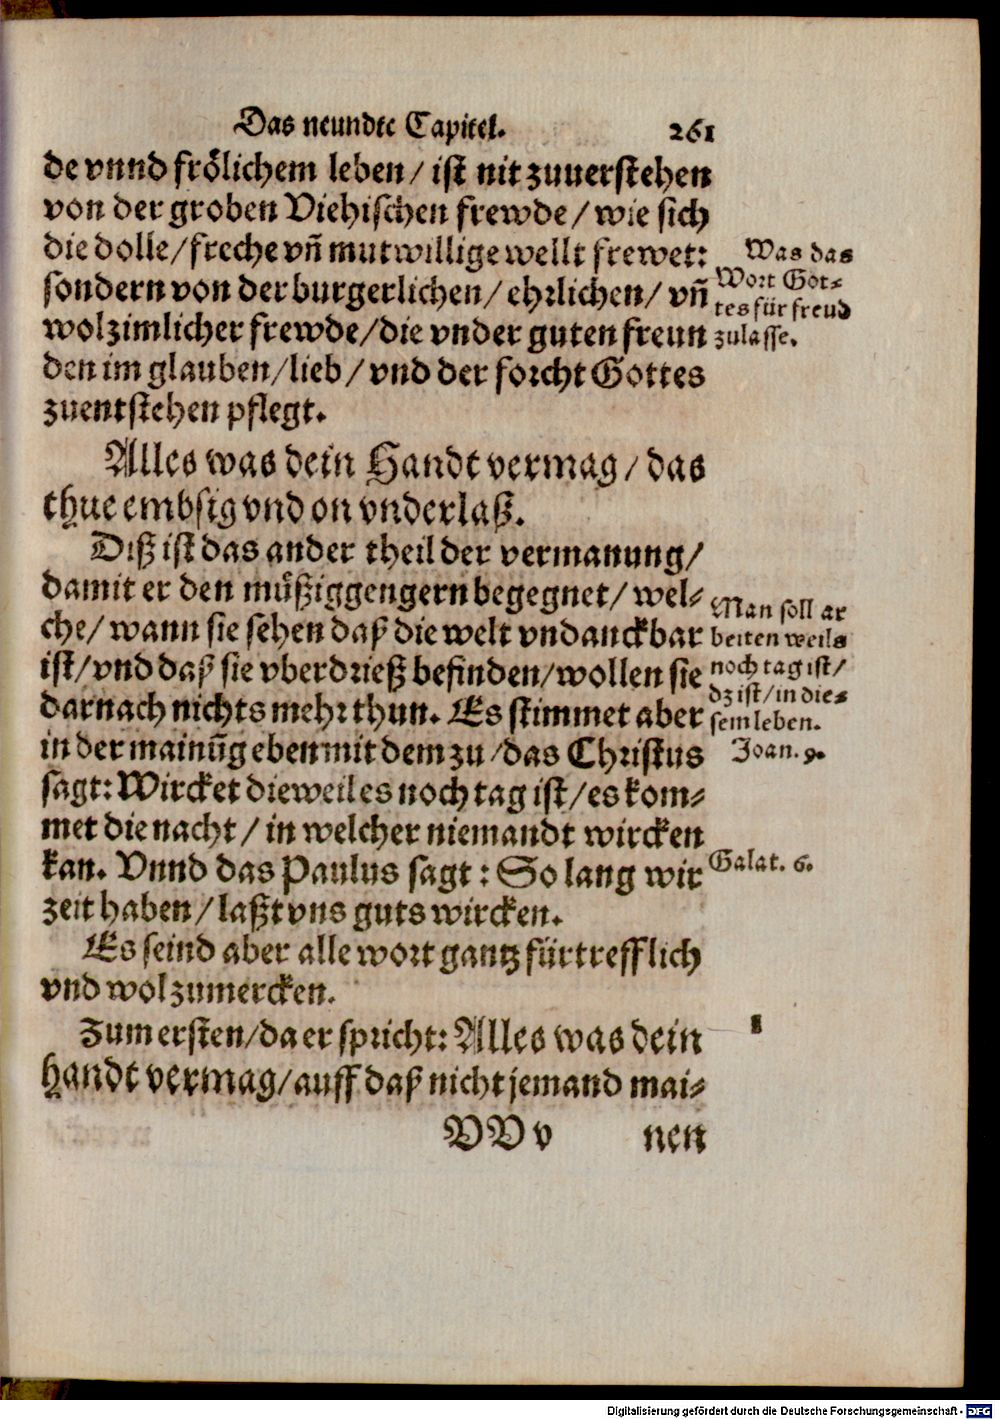 Das neundte Capitel. 261
de vnnd frölichem leben / ist nit zuuerstehen
von der groben Viehischen frewde / wie sich
die dolle / freche vñ mutwillige wellt frewet:
sondern von der burgerlichen / ehrlichen / vñ
wolzimlicher frewde / die vnder guten freun
den im glauben / lieb / vnd der forcht Gottes
zuentstehen pflegt.
Was das
Wort Got⸗
tes für freud
zulasse.
Alles was dein Handt vermag / das
thue embsig vnd on vnderlaß.
Diß ist das ander theil der vermanung /
damit er den müßiggengern begegnet / wel⸗
che / wann sie sehen daß die welt vndanckbar
ist / vnd daß sie vberdrieß befinden / wollen sie
darnach nichts mehr thun. Es stimmet aber
in der mainũg eben mit dem zu / das Christus
sagt: Wircket dieweil es noch tag ist / es kom⸗
met die nacht / in welcher niemandt wircken
kan. Vnnd das Paulus sagt: So lang wir
zeit haben / laßt vns guts wircken.
Man soll ar
beiten weils
noch tag ist /
dz ist / in die⸗
sem leben.
Joan. 9.
Galat. 6.
Es seind aber alle wort gantz fürtrefflich
vnd wol zumercken.
Zum ersten / da er spricht: Alles was dein
handt vermag / auff daß nicht jemand mai⸗
1
VV v nen
Digitalisierung gefördert durch die Deutsche Forschungsgemeinschaft - DFG